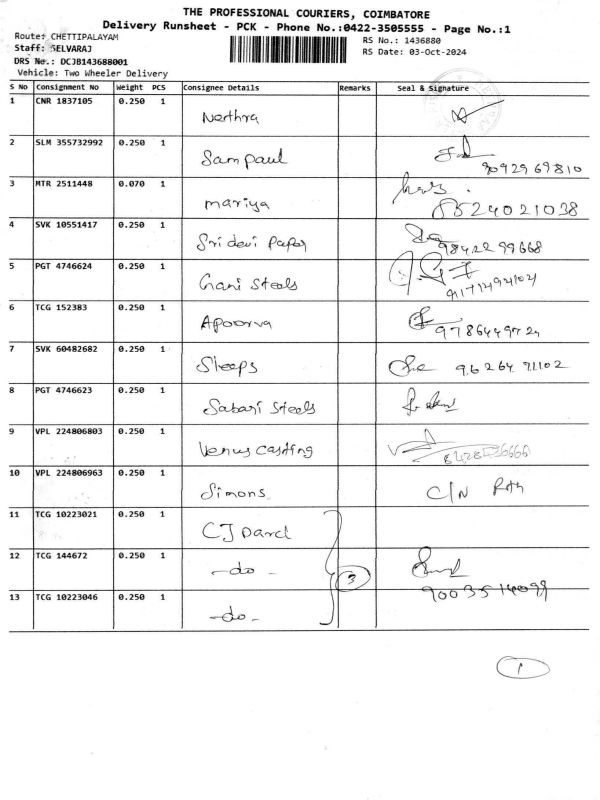 THE PROFESSIONAL COURIERS, COIMBATORE
Delivery Runsheet - PCK - Phone No.:0422-3505555 - Page No.:1
Route: CHETTIPALAYAM
Staff: SELVARAJ
DRS No.: DCJB143688001
Vehicle: Two Wheeler Delivery
RS No.: 1436880
RS Date: 03-Oct-2024
S No Consignment No Weight PCS Consignee Details Remarks Seal & Signature
1 CNR 1837105 0.250 1 Nerthra
2 SLM 355732992 0.250 1 Sam paul 9092969810
3 MTR 2511448 0.070 1 mariya 8524021038
4 SVK 10551417 0.250 1 Sri devi Paper 9842299668
5 PGT 4746624 0.250 1 Gani Steels
6 TCG 152383 0.250 1 Apoorva
7 SVK 60482682 0.250 1 Sleeps 9626491102
8 PGT 4746623 0.250 1 Sabari Steels
9 VPL 224806803 0.250 1 Venus casting
10 VPL 224806963 0.250 1 Simons C/N
11 TCG 10223021 0.250 1 CJ Darcl
12 TCG 144672 0.250 1 -do- 3
13 TCG 10223046 0.250 1 -do- 9003514099
1